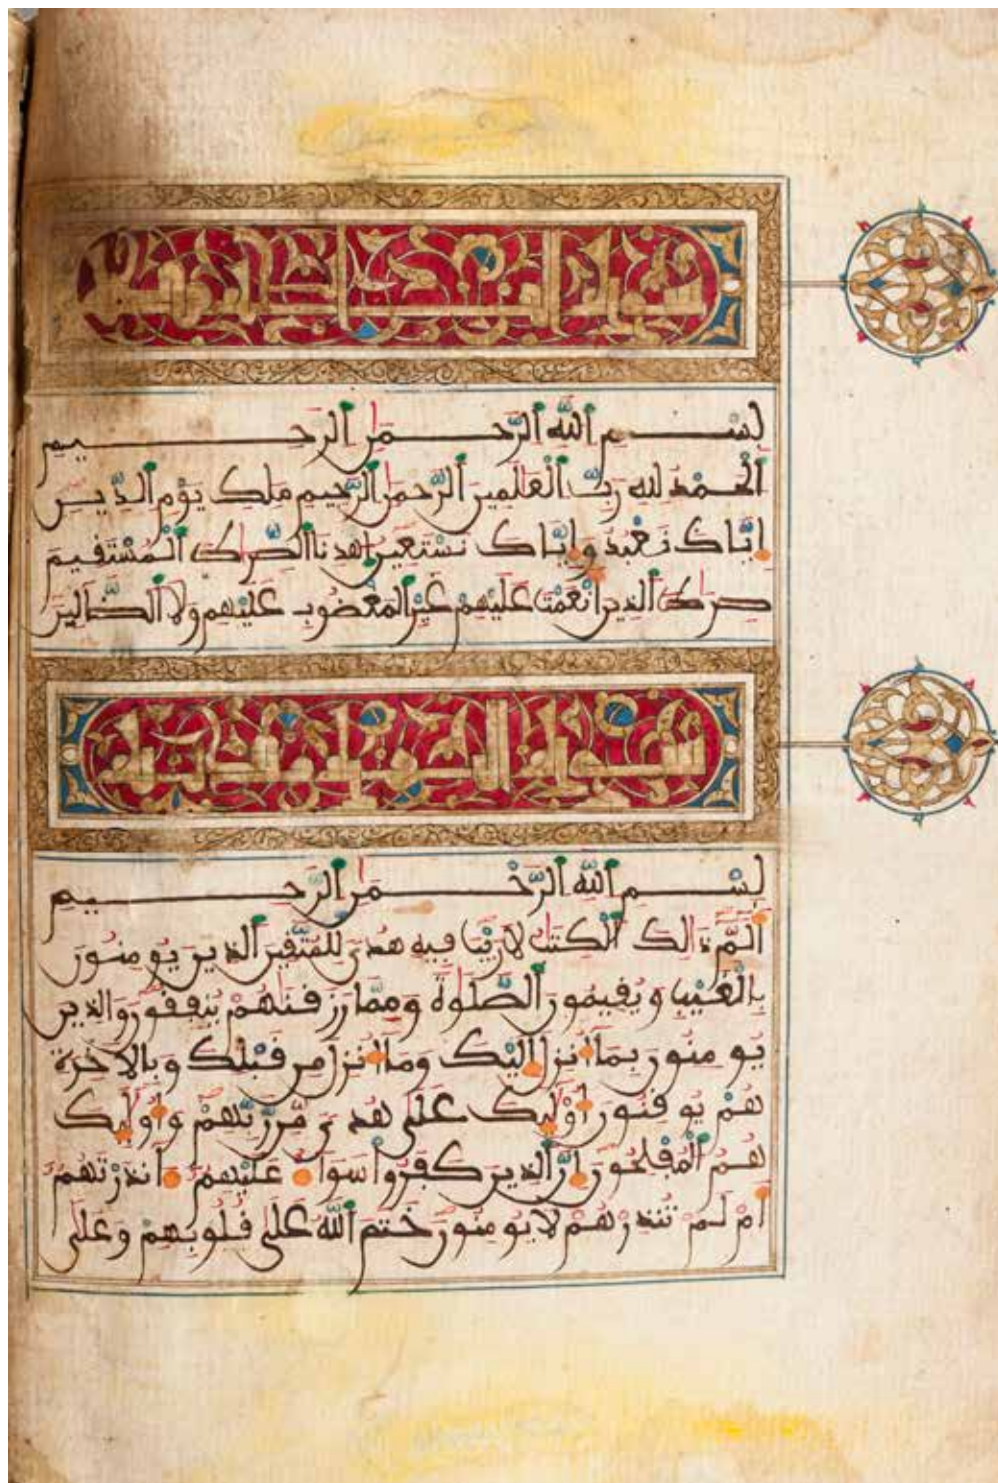 سورة الحمد
بِسْمِ اللَّهِ الرَّحْمَٰنِ الرَّحِيمِ
الْحَمْدُ لِلهِ رَبِّ الْعَٰلَمِينَ الرَّحْمَٰنِ الرَّحِيمِ مَلِكِ يَوْمِ الدِّينِ
إِيَّاكَ نَعْبُدُ وَإِيَّاكَ نَسْتَعِينُ اهْدِنَا الصِّرَٰطَ الْمُسْتَقِيمَ
صِرَٰطَ الذِينَ أَنْعَمْتَ عَلَيْهِمْ غَيْرِ الْمَغْضُوبِ عَلَيْهِمْ وَلَا الضَّالِّينَ
سورة البقرة مدنية
بِسْمِ اللَّهِ الرَّحْمَٰنِ الرَّحِيمِ
الَمِّ ذَٰلِكَ الْكِتَٰبُ لَا رَيْبَ فِيهِ هُدىً لِّلْمُتَّقِينَ الذِينَ يُومِنُونَ
بِالْغَيْبِ وَيُقِيمُونَ الصَّلَوٰةَ وَمِمَّا رَزَقْنَٰهُمْ يُنفِقُونَ وَالذِينَ
يُومِنُونَ بِمَا أُنزِلَ إِلَيْكَ وَمَا أُنزِلَ مِن قَبْلِكَ وَبِالَاخِرَةِ
هُمْ يُوقِنُونَ أُوْلَٰئِكَ عَلَىٰ هُدىً مِّن رَّبِّهِمْ وَأُوْلَٰئِكَ
هُمُ الْمُفْلِحُونَ إِنَّ الذِينَ كَفَرُواْ سَوَآءٌ عَلَيْهِمُ ءَآنذَرْتَهُمُ
أَمْ لَمْ تُنذِرْهُمْ لَا يُومِنُونَ خَتَمَ اللَّهُ عَلَىٰ قُلُوبِهِمْ وَعَلَىٰ